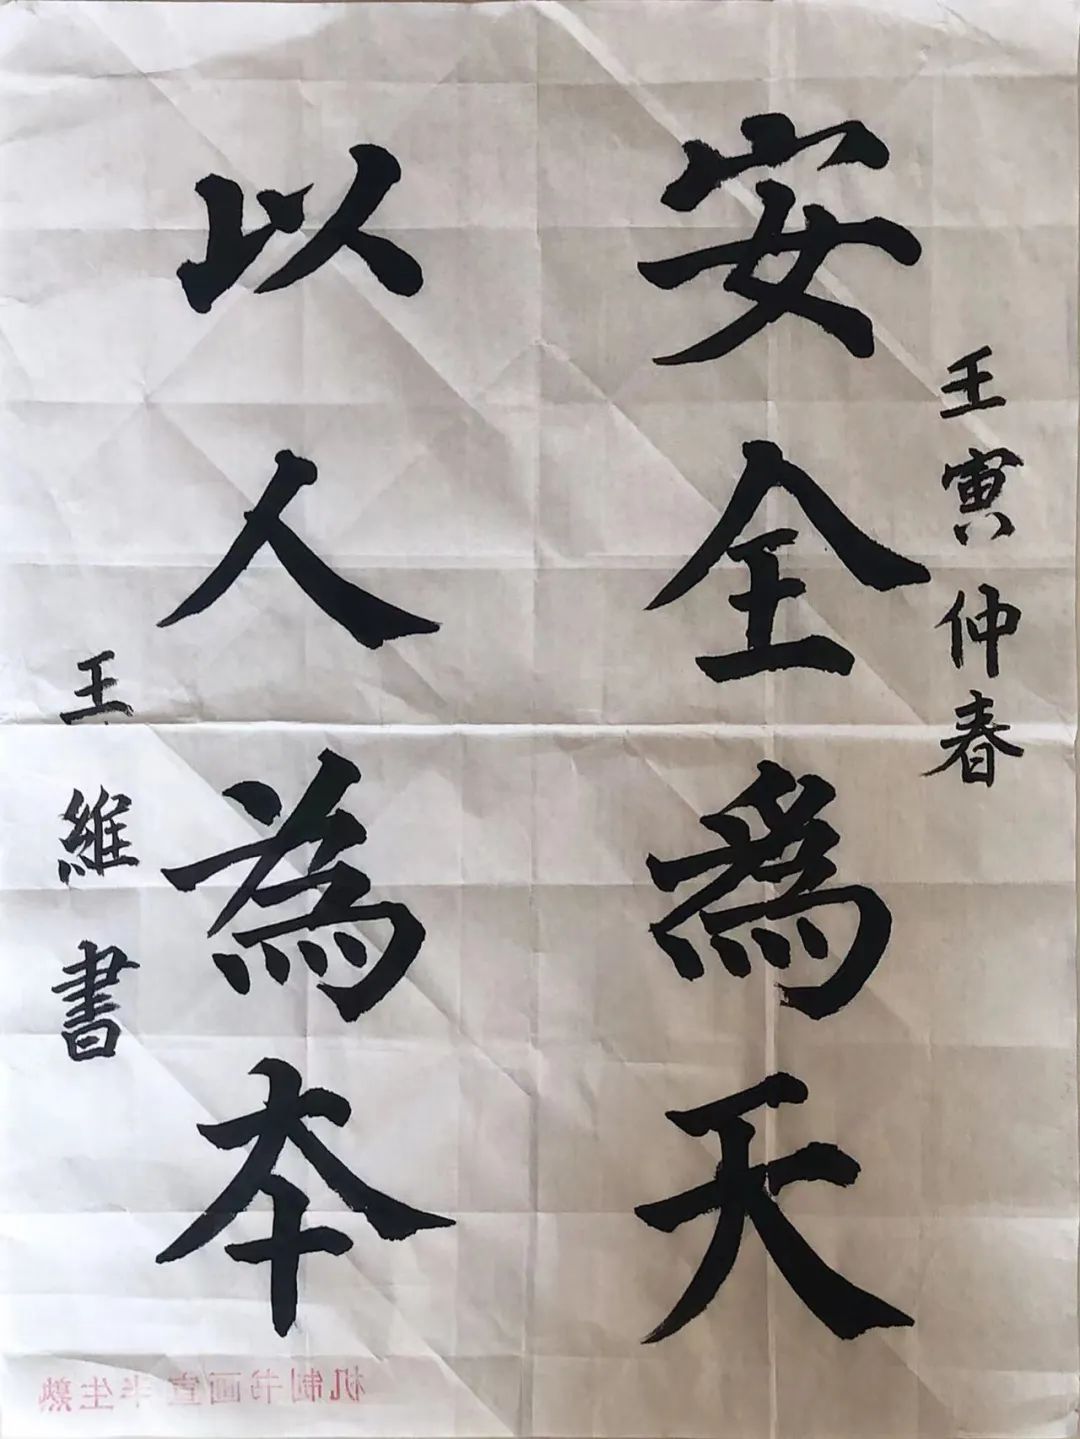 壬寅仲春
安全爲天
以人為本
王維書
机制书画宣半生熟